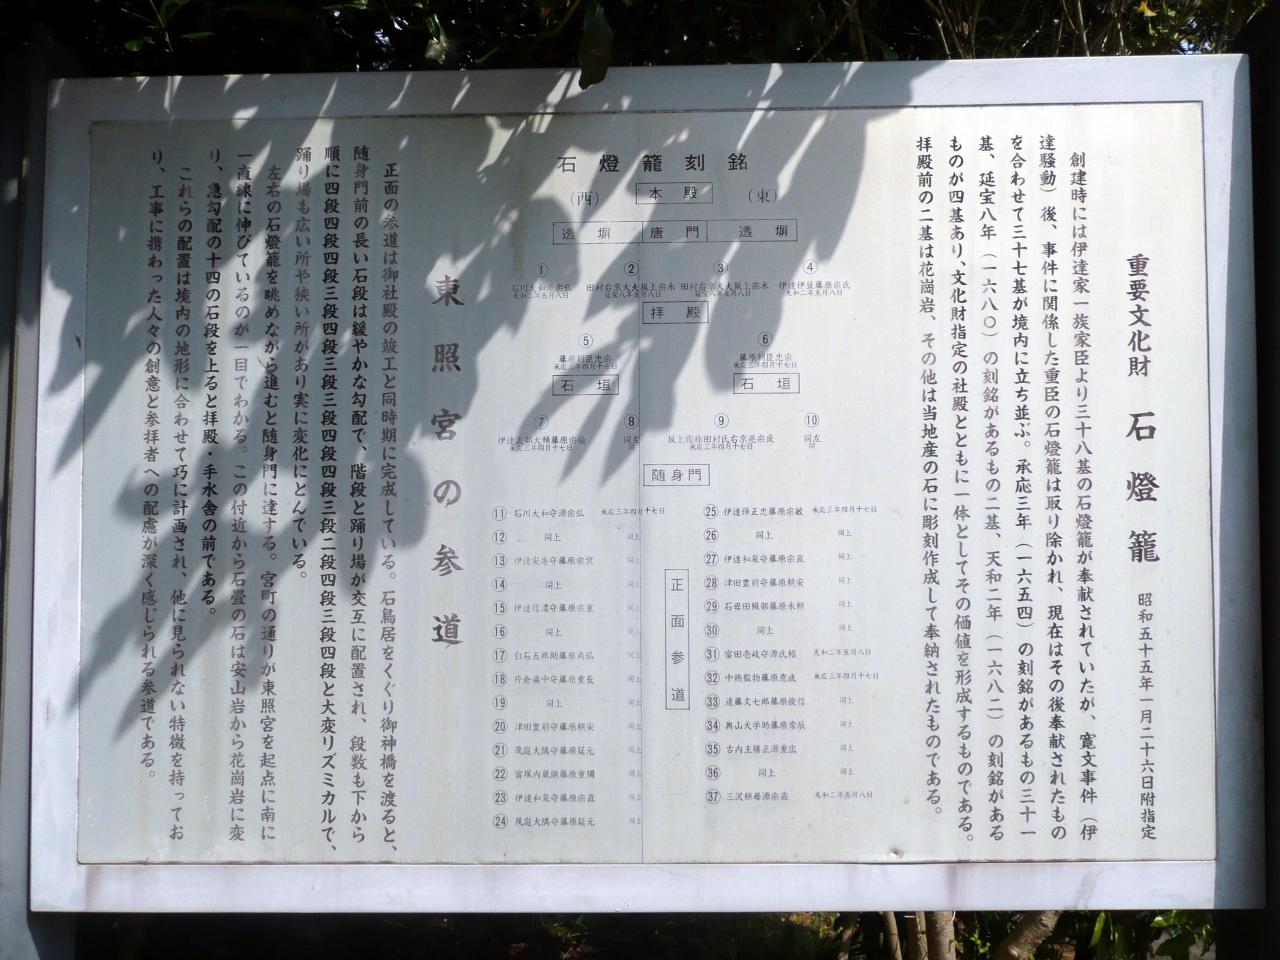 重要文化財 石燈籠 昭和五十五年一月二十六日附指定
創建時には伊達家一族家臣より三十八基の石燈籠が奉献されていたが、寛文事件（伊
達騒動）後、事件に関係した重臣の石燈籠は取り除かれ、現在はその後奉献されたもの
を合わせて三十七基が境内に立ち並ぶ。承応三年（一六五四）の刻銘があるもの三十一
基、延宝八年（一六八〇）の刻銘があるもの二基、天和二年（一六八二）の刻銘がある
ものが四基あり、文化財指定の社殿とともに一体としてその価値を形成するものである。
拝殿前の二基は花崗岩、その他は当地産の石に彫刻作成して奉納されたものである。
石燈籠刻銘
（西） 本殿 （東）
透塀 唐門 透塀
① ② ③ ④
石川大和源宗弘 田村右京大夫坂上宗永 田村右京大夫坂上宗永 伊達伊豆藤原宗氏
天和二年五月八日 延宝八年五月八日 延宝八年五月八日 天和二年五月八日
拝殿
⑤ ⑥
藤原朝臣忠宗 藤原朝臣忠宗
承応三年四月十七日 承応三年四月十七日
石垣 石垣
⑦ ⑧ ⑨ ⑩
伊達兵部大輔藤原宗倫 同左 坂上宿祢田村氏右京亮宗良 同左
承応三年四月十七日 同 承応三年四月十七日 同
随身門
正面参道
⑪ 石川大和守源宗弘 承応三年四月十七日
⑫ 同上 同上
⑬ 伊達安房守藤原宗実 同上
⑭ 同上 同上
⑮ 伊達信濃守藤原宗重 同上
⑯ 同上 同上
⑰ 白石五郎助藤原 同上
⑱ 片倉備中守藤原重長 同上
⑲ 同上 同上
⑳ 津田豊前守藤原頼安 同上
㉑ 茂庭大隅守藤原延元 同上
㉒ 富塚内蔵頭藤原重 同上
㉓ 伊達和泉守藤原宗直 同上
㉔ 茂庭大隅守藤原延元 同上
㉕ 伊達弾正忠藤原宗敏 承応三年四月十七日
㉖ 同上 同上
㉗ 伊達和泉守藤原宗直 同上
㉘ 津田豊前守藤原頼安 同上
㉙ 石母田織部藤原永頼 同上
㉚ 同上 同上
㉛ 富田壱岐守源氏紹 天和二年五月八日
㉜ 中嶋監物藤原意成 承応三年四月十七日
㉝ 遠藤文七郎藤原俊信 同上
㉞ 奥山大学助藤原常辰 同上
㉟ 古内主膳正源重広 同上
㊱ 同上 同上
㊲ 三沢頼母源宗直 天和二年五月八日
東照宮の参道
正面の参道は御社殿の竣工と同時期に完成している。石鳥居をくぐり御神橋を渡ると、
随身門前の長い石段は緩やかな勾配で、階段と踊り場が交互に配置され、段数も下から
順に四段四段四段三段四段三段三段四段四段三段二段四段三段四段と大変リズミカルで、
踊り場も広い所や狭い所があり実に変化にとんでいる。
左右の石燈籠を眺めながら進むと随身門に達する。宮町の通りが東照宮を起点に南に
一直線に伸びているのが一目でわかる。この付近から石畳の石は安山岩から花崗岩に変
り、急勾配の十四の石段を上ると拝殿・手水舎の前である。
これらの配置は境内の地形に合わせて巧に計画され、他に見られない特徴を持ってお
り、工事に携わった人々の創意と参拝者への配慮が深く感じられる参道である。